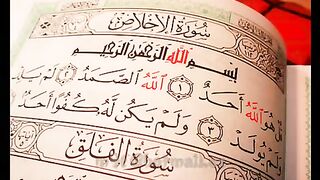 سُورَةُ الإِخْلَاصِ
بِسْمِ اللَّهِ الرَّحْمَٰنِ الرَّحِيمِ
قُلْ هُوَ اللَّهُ أَحَدٌ ١ اللَّهُ الصَّمَدُ ٢ لَمْ يَلِدْ
وَلَمْ يُولَدْ ٣ وَلَمْ يَكُن لَّهُ كُفُوًا أَحَدٌ
سُورَةُ الْفَلَقِ